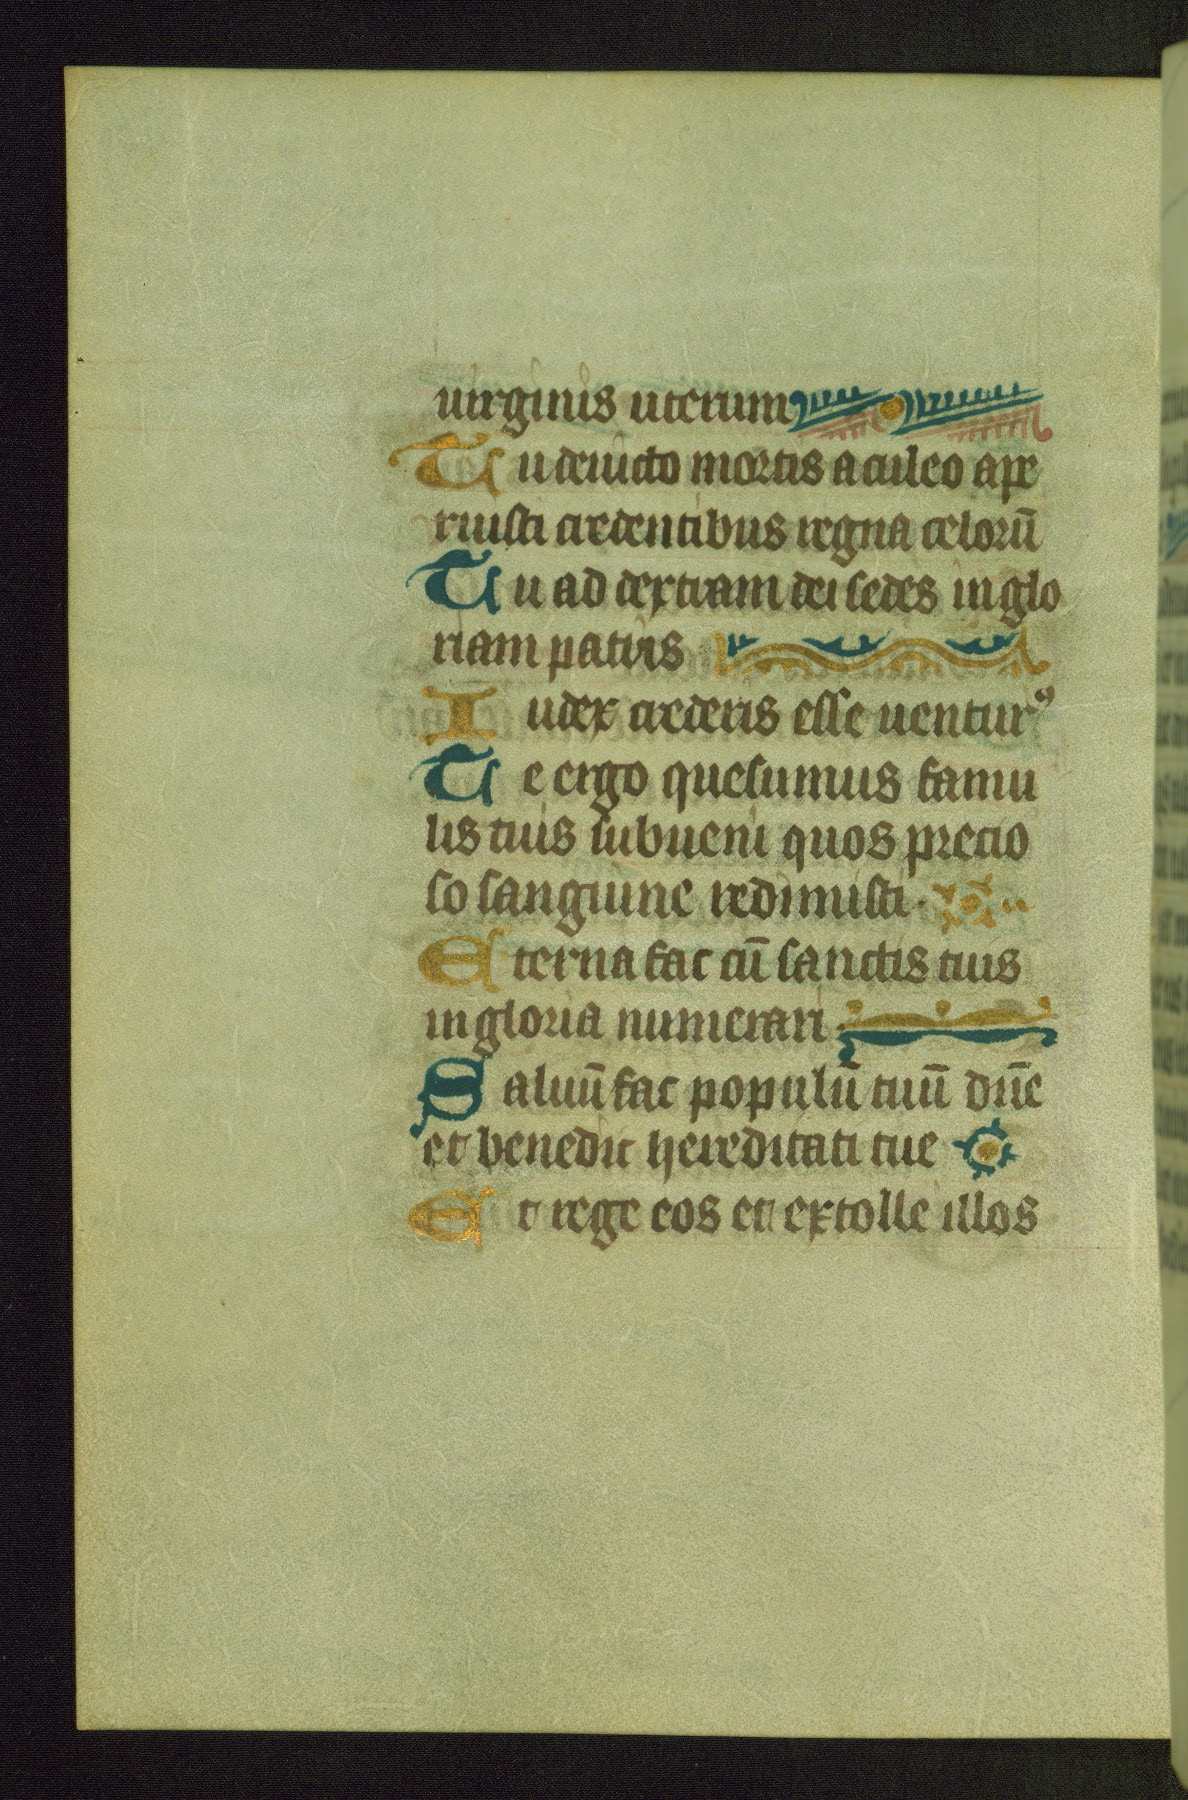 uirginis uterum
Tu deuicto mortis aculeo ape
ruisti credentibus regna celorū
Tu ad dextram dei sedes in glo
riam patris
Iudex crederis esse uenturꝰ
Te ergo quesumus famu
lis tuis subueni quos precio
so sanguine redimisti.
Eterna fac cū sanctis tuis
in gloria numerari.
Saluū fac populū tuū dn̄e
et benedic hereditati tue
Et rege eos et extolle illos